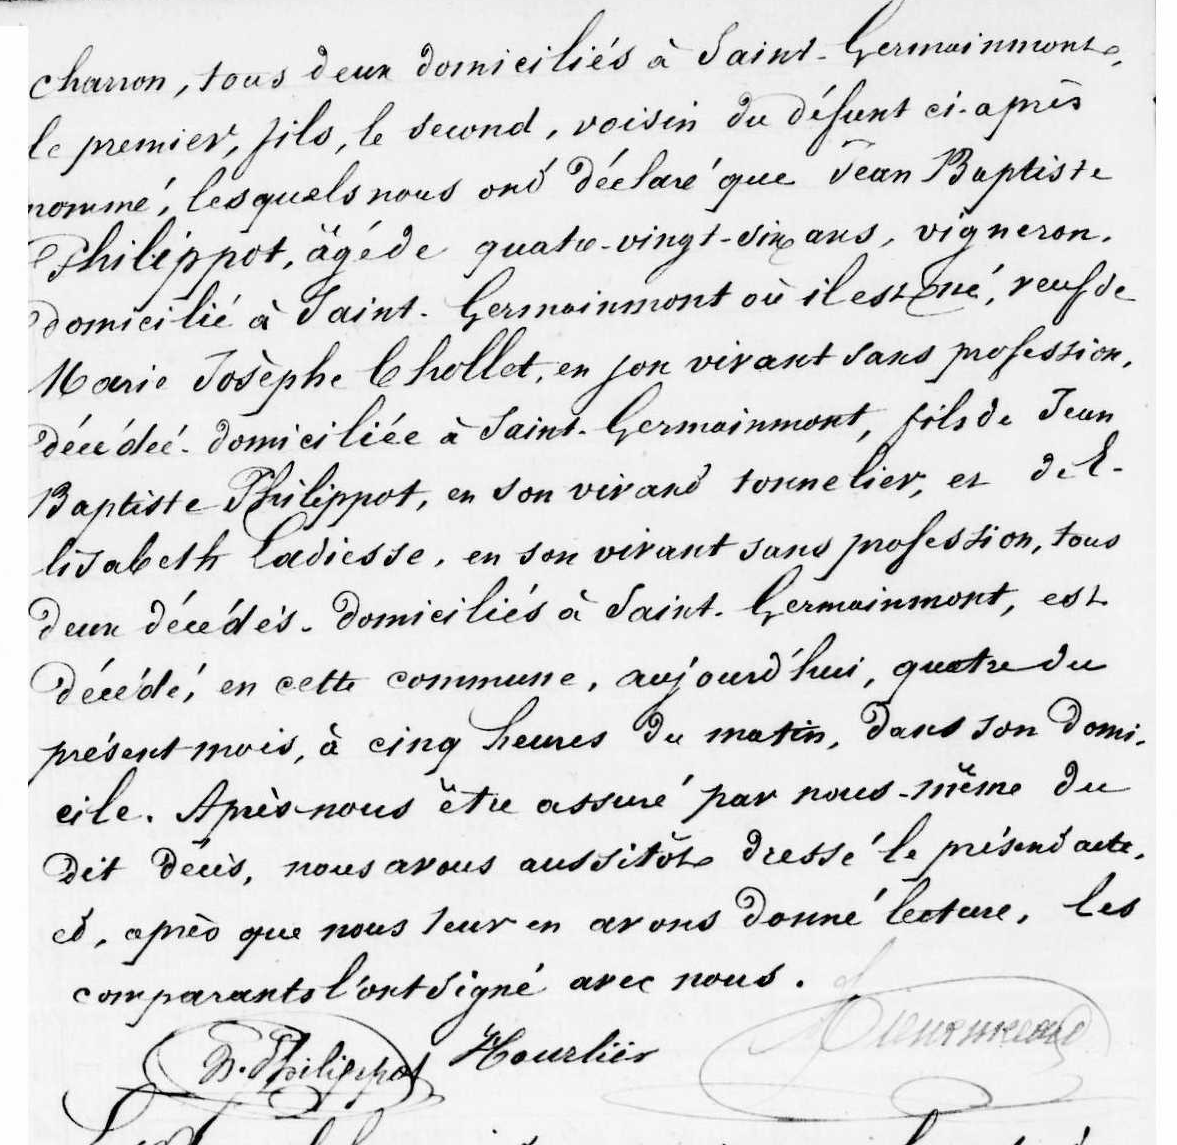 charron, tous deux domiciliés à Saint-Germainmont,
le premier, fils, le second, voisin du défunt ci-après
nommé, lesquels nous ont déclaré que Jean Baptiste
Philippot, âgé de quatre-vingt-six ans, vigneron,
domicilié à Saint-Germainmont où il est né, veuf de
Marie Josèphe Chollet, en son vivant sans profession,
décédée domiciliée à Saint-Germainmont, fils de Jean
Baptiste Philippot, en son vivant tonnelier, et de E-
lisabeth Ladiesse, en son vivant sans profession, tous
deux décédés domiciliés à Saint-Germainmont, est
décédé, en cette commune, aujourd'hui, quatre du
présent mois, à cinq heures du matin, dans son domi-
cile. Après nous être assuré par nous-même du
dit décès, nous avons aussitôt dressé le présent acte,
et, après que nous leur en avons donné lecture, les
comparants l'ont signé avec nous.
B. Philippot Hourlier